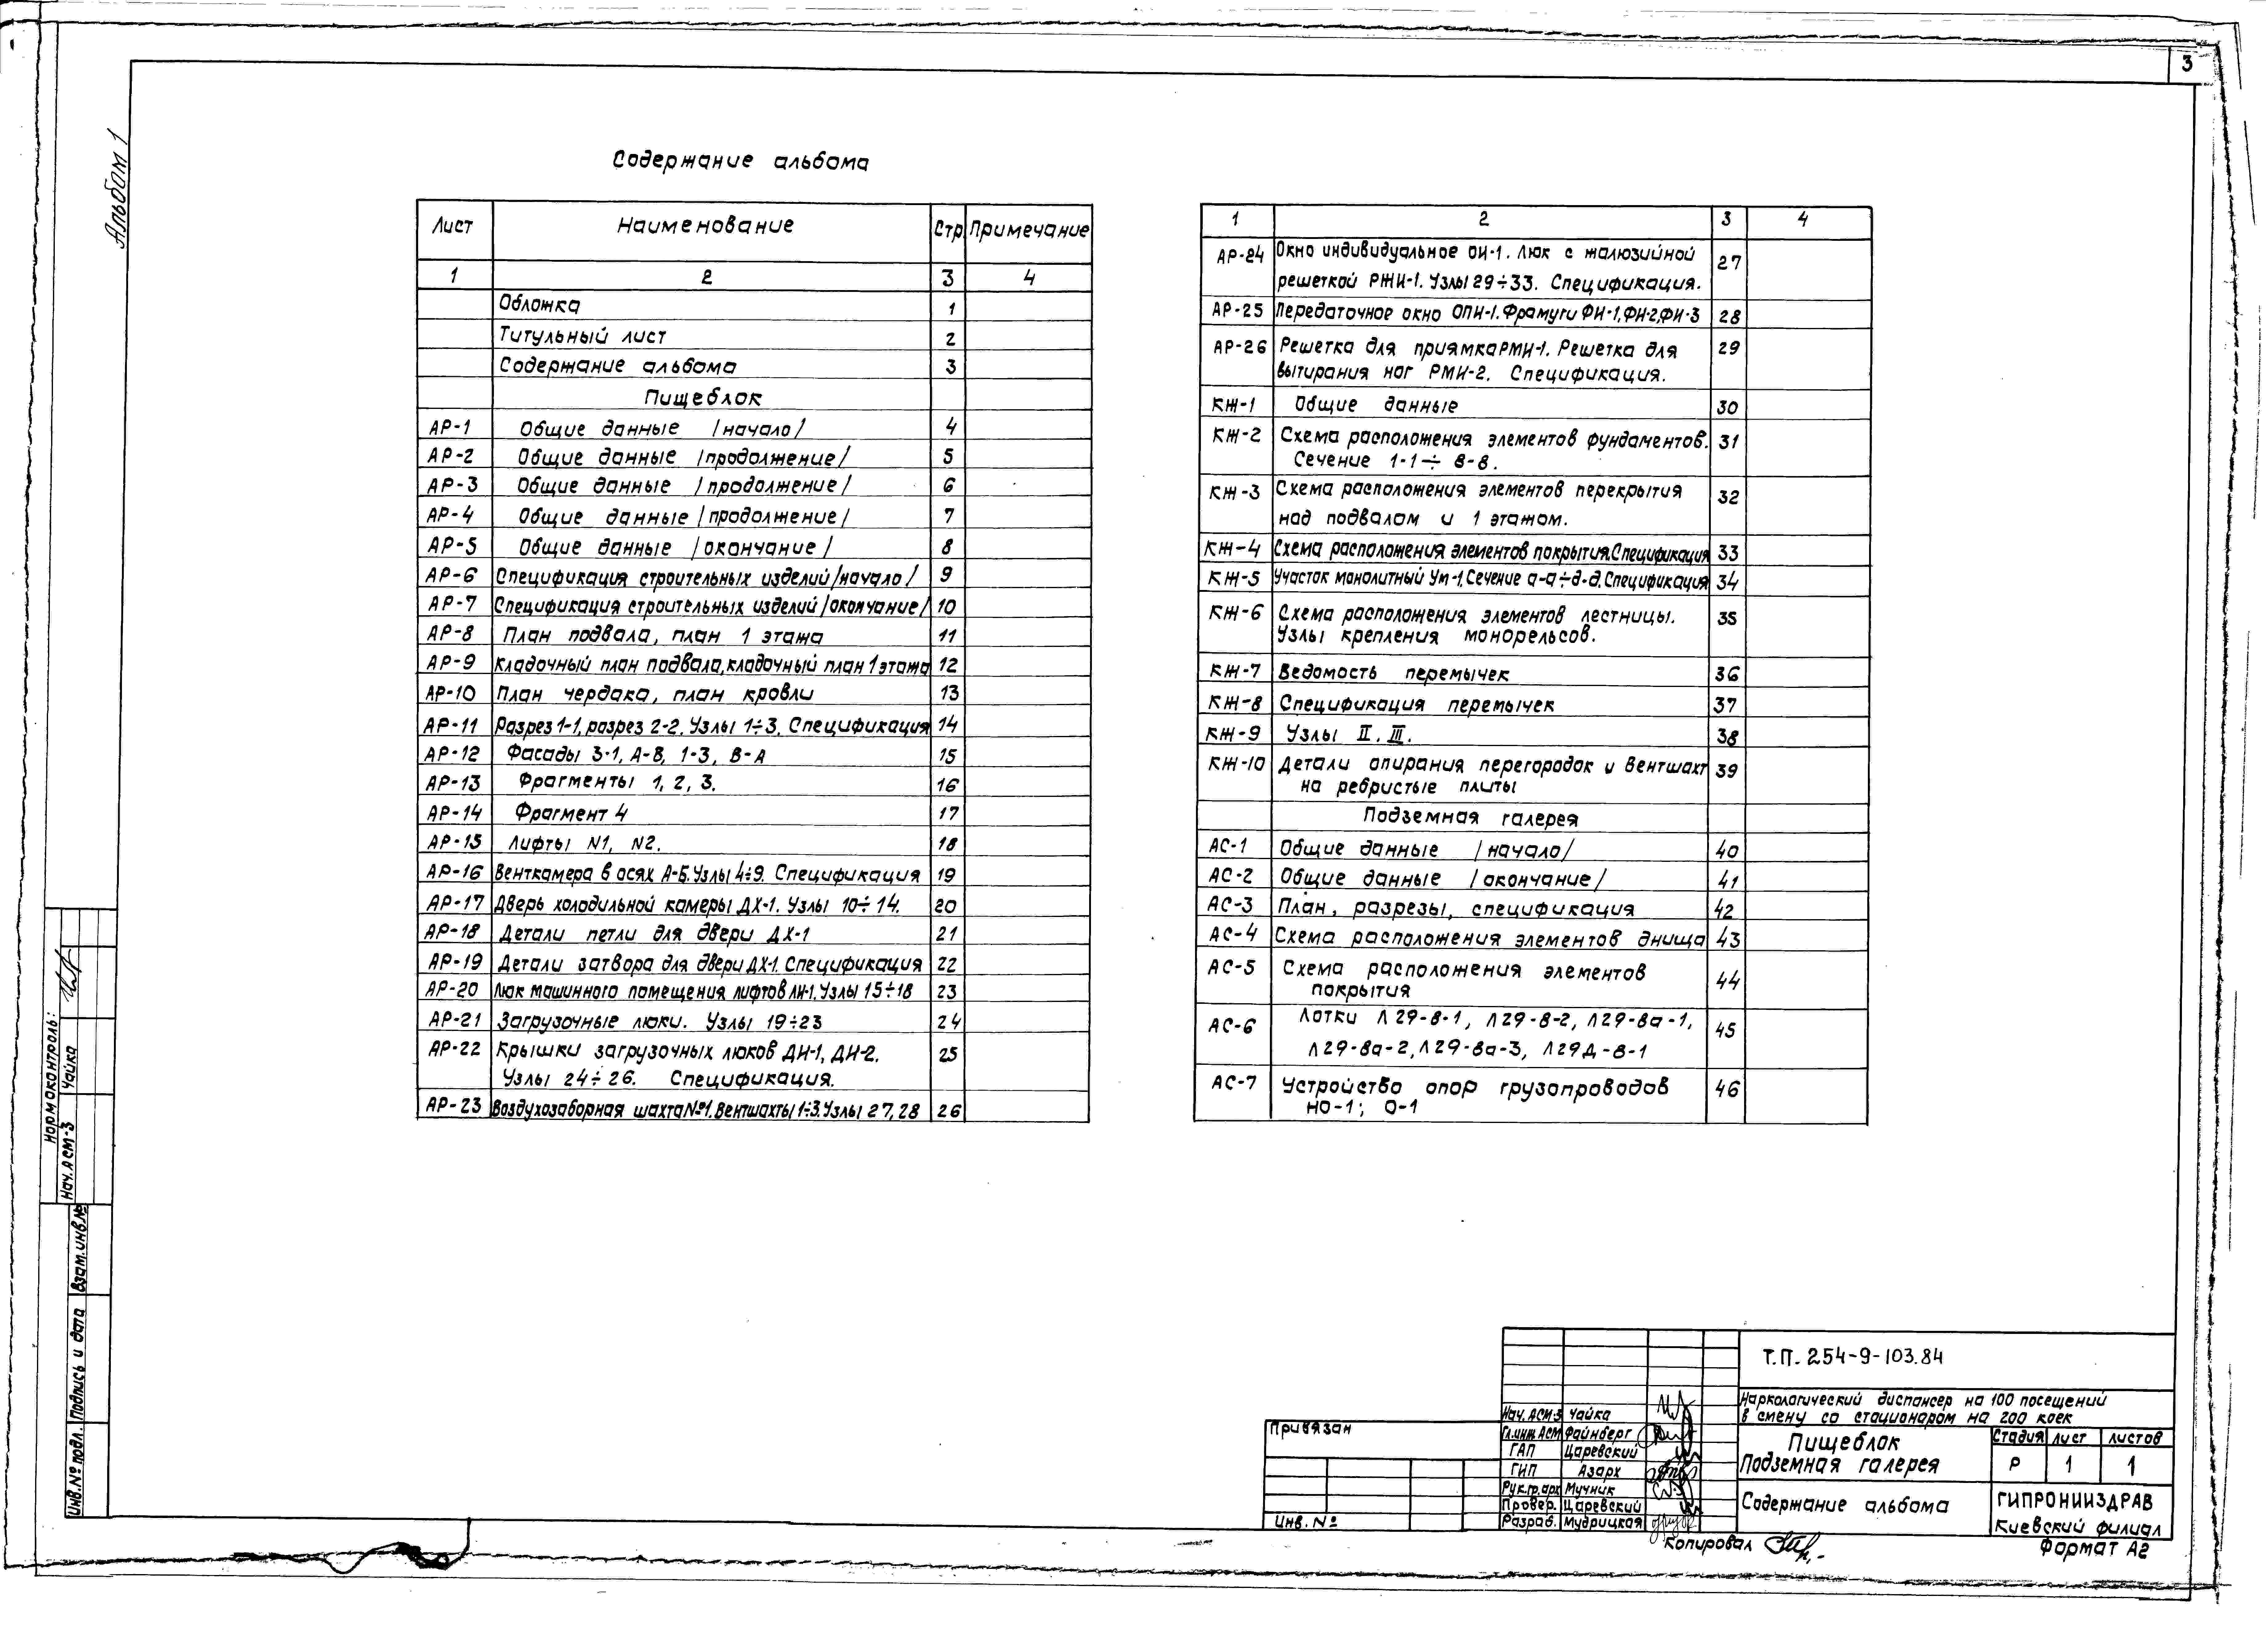 3
Альбом 1
Содержание альбома
Лист Наименование Стр. Примечание
1 2 3 4
Обложка 1
Титульный лист 2
Содержание альбома 3
Пищеблок
АР-1 Общие данные /начало/ 4
АР-2 Общие данные /продолжение/ 5
АР-3 Общие данные /продолжение/ 6
АР-4 Общие данные /продолжение/ 7
АР-5 Общие данные /окончание/ 8
АР-6 Спецификация строительных изделий /начало/ 9
АР-7 Спецификация строительных изделий /окончание/ 10
АР-8 План подвала, план 1 этажа 11
АР-9 Кладочный план подвала, кладочный план 1 этажа 12
АР-10 План чердака, план кровли 13
АР-11 Разрез 1-1, разрез 2-2. Узлы 1÷3. Спецификация 14
АР-12 Фасады 3-1, А-В, 1-3, В-А 15
АР-13 Фрагменты 1, 2, 3. 16
АР-14 Фрагмент 4 17
АР-15 Лифты N1, N2. 18
АР-16 Венткамера в осях А-Б. Узлы 4÷9. Спецификация 19
АР-17 Дверь холодильной камеры ДХ-1. Узлы 10÷14. 20
АР-18 Детали петли для двери ДХ-1 21
АР-19 Детали затвора для двери ДХ-1. Спецификация 22
АР-20 Люк машинного помещения лифтов ЛИ-1. Узлы 15÷18 23
АР-21 Загрузочные люки. Узлы 19÷23 24
АР-22 Крышки загрузочных люков ДИ-1, ДИ-2. 25
Узлы 24÷26. Спецификация.
АР-23 Воздухозаборная шахта №1. Вентшахты 1÷3. Узлы 27, 28 26
1 2 3 4
АР-24 Окно индивидуальное ОИ-1. Люк с жалюзийной 27
решеткой РЖИ-1. Узлы 29÷33. Спецификация.
АР-25 Передаточное окно ОПИ-1. Фрамуги ФИ-1, ФИ-2, ФИ-3 28
АР-26 Решетка для приямка РМИ-1. Решетка для 29
вытирания ног РМИ-2. Спецификация.
КЖ-1 Общие данные 30
КЖ-2 Схема расположения элементов фундаментов. 31
Сечение 1-1÷8-8.
КЖ-3 Схема расположения элементов перекрытия 32
над подвалом и 1 этажом.
КЖ-4 Схема расположения элементов покрытия. Спецификация 33
КЖ-5 Участок монолитный Ум-1. Сечение а-а÷д-д. Спецификация 34
КЖ-6 Схема расположения элементов лестницы. 35
Узлы крепления монорельсов.
КЖ-7 Ведомость перемычек 36
КЖ-8 Спецификация перемычек 37
КЖ-9 Узлы II. III. 38
КЖ-10 Детали опирания перегородок и вентшахт 39
на ребристые плиты
Подземная галерея
АС-1 Общие данные /начало/ 40
АС-2 Общие данные /окончание/ 41
АС-3 План, разрезы, спецификация 42
АС-4 Схема расположения элементов днища 43
АС-5 Схема расположения элементов 44
покрытия
АС-6 Лотки Л29-8-1, Л29-8-2, Л29-8а-1, 45
Л29-8а-2, Л29-8а-3, Л29Д-8-1
АС-7 Устройство опор грузопроводов 46
НО-1; О-1
Нормоконтроль:
Нач. АСМ-3 Чайка
Взам. инв. №
Подпись и дата
Инв. № подл.
Привязан
Инв. №
Нач. АСМ-3 Чайка
Гл. инж. АСМ Файнберг
ГАП Царевский
ГИП Азарх
Рук. гр. арх. Мучник
Провер. Царевский
Разраб. Мудрицкая
Т.П. 254-9-103.84
Наркологический диспансер на 100 посещений
в смену со стационаром на 200 коек
Пищеблок
Подземная галерея
Стадия Лист Листов
Р 1 1
Содержание альбома
ГИПРОНИИЗДРАВ
Киевский филиал
Копировал
Формат А2